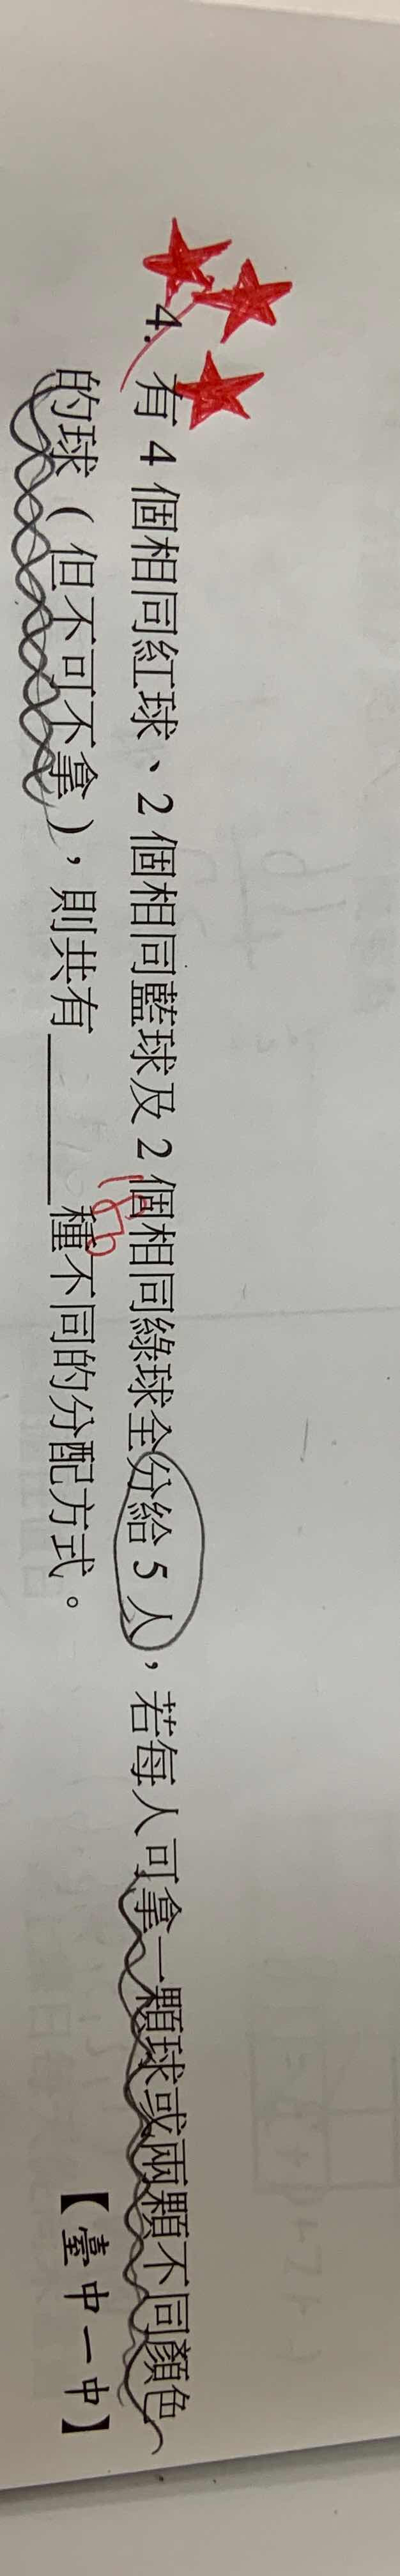 4. 有 4 個相同紅球、2 個相同藍球及 2 個相同綠球全分給 5 人，若每人可拿一顆球或兩顆不同顏色
的球（但不可不拿），則共有______種不同的分配方式。【臺中一中】